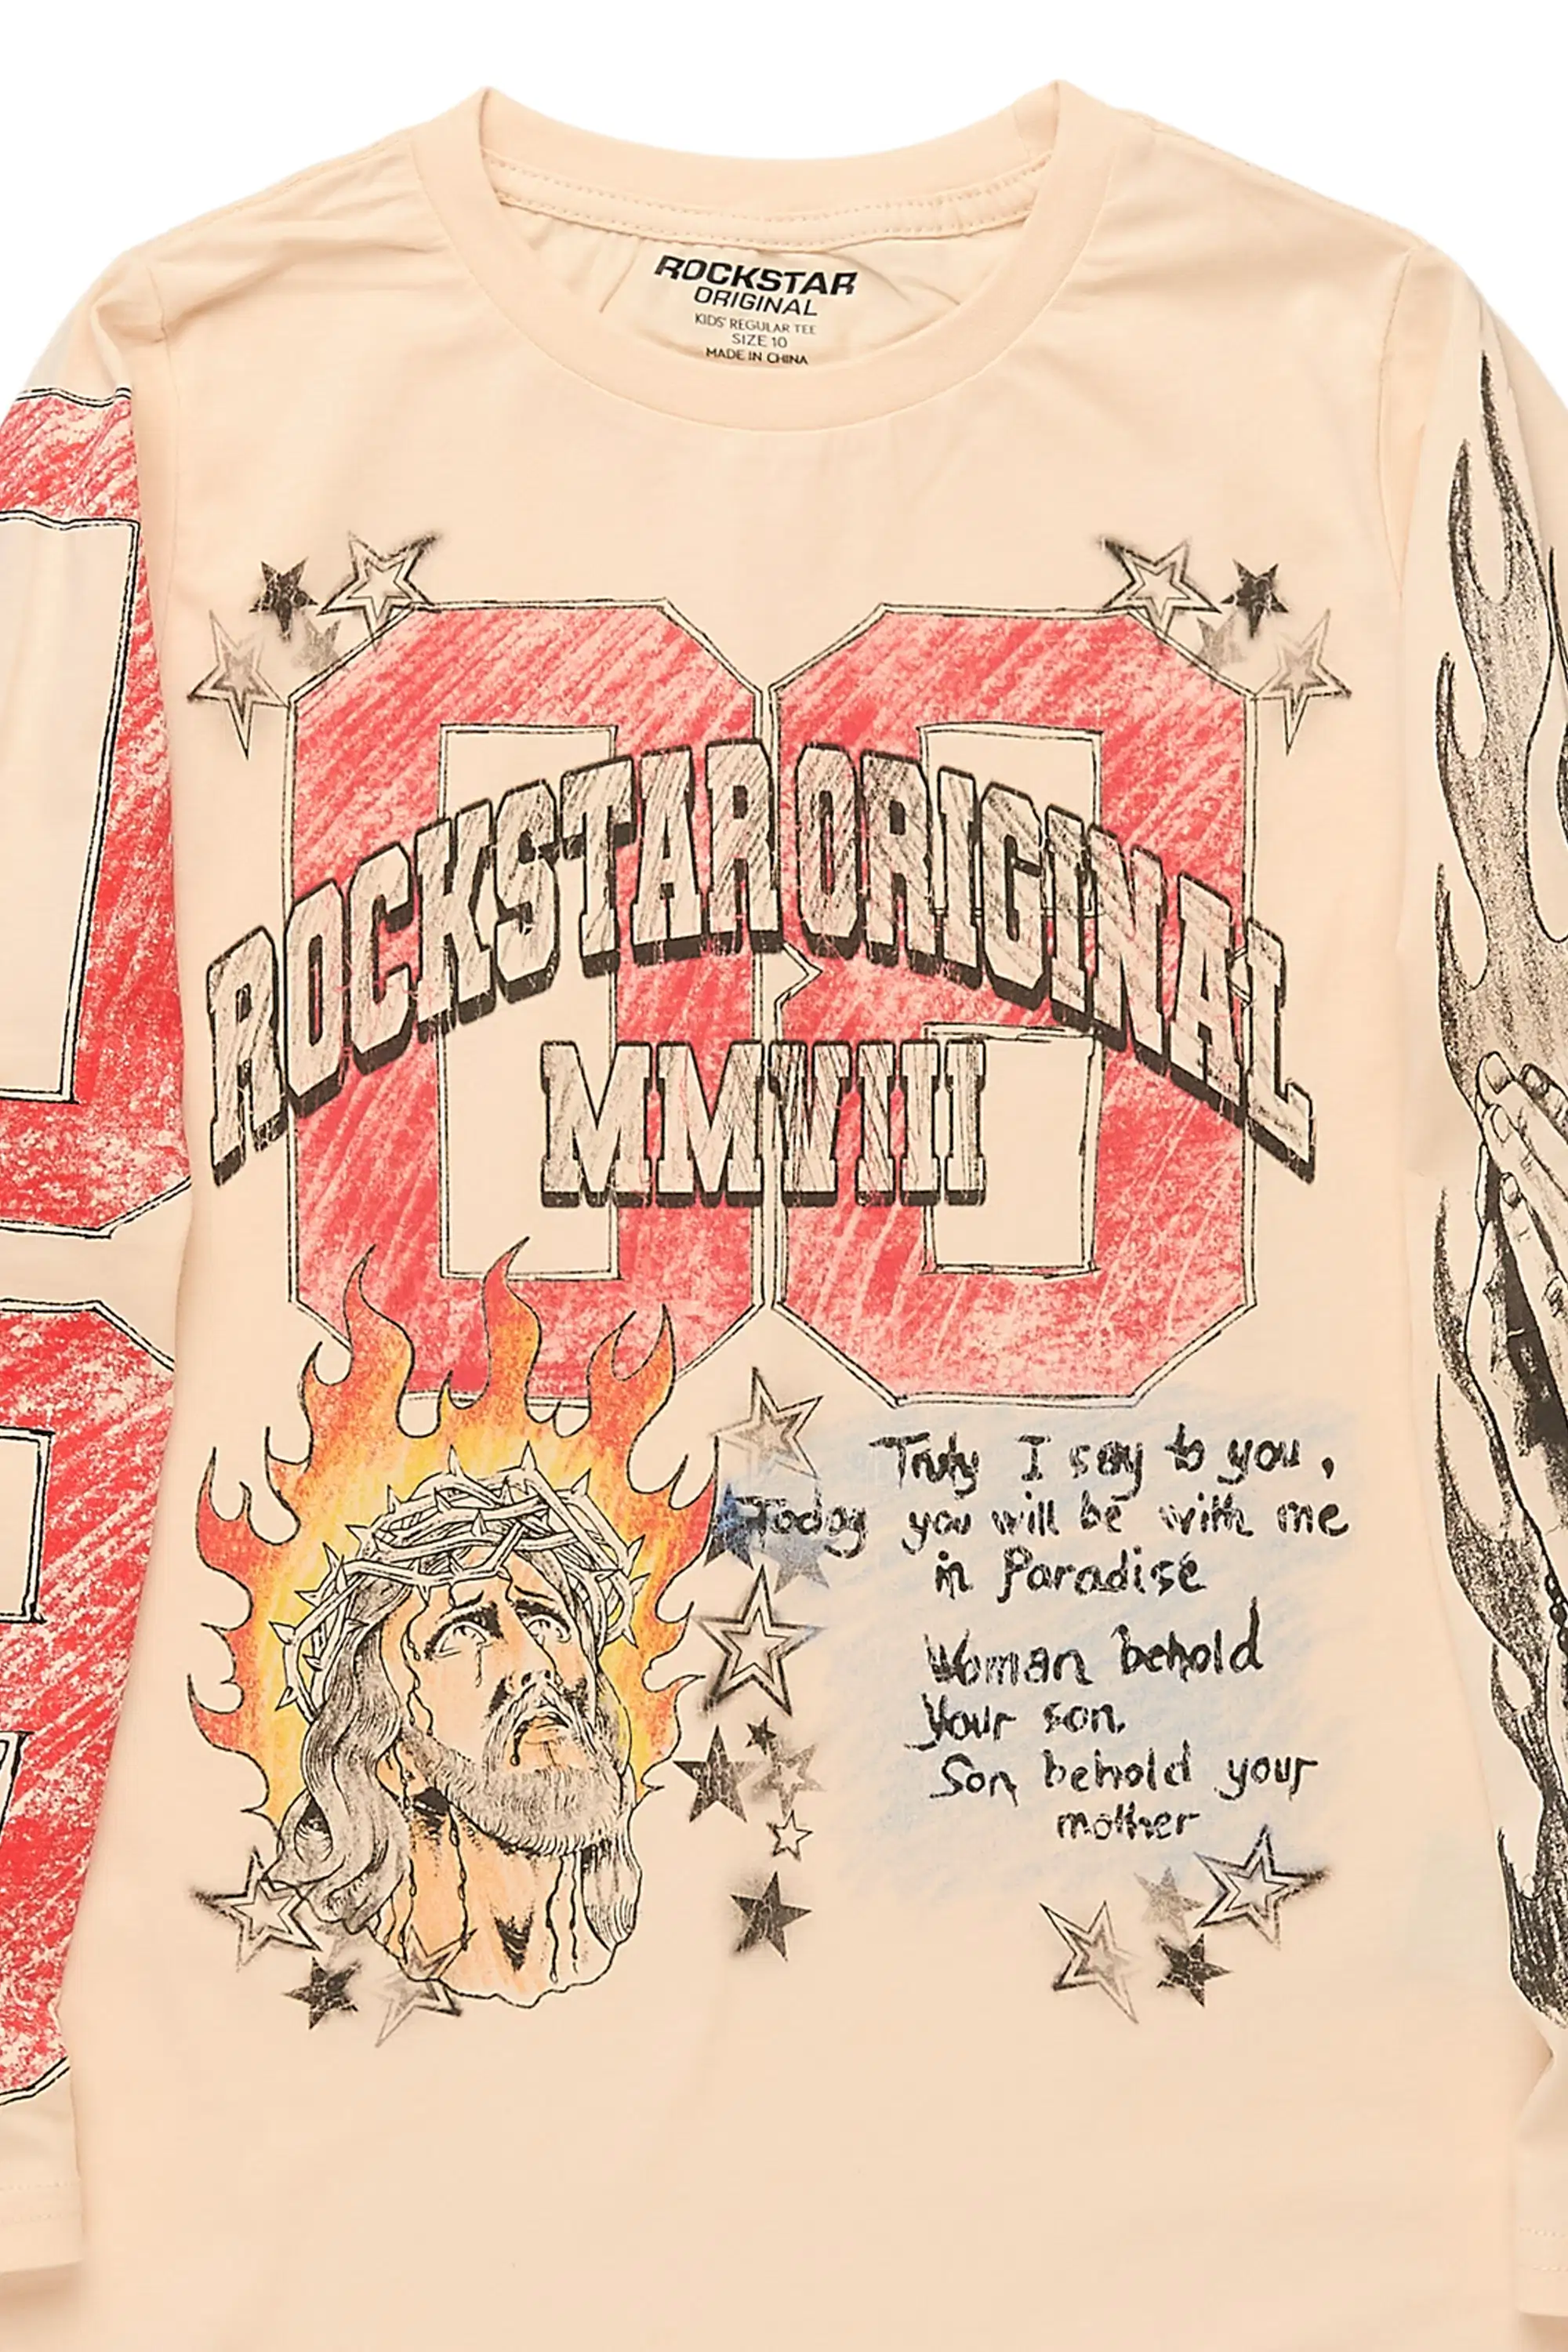 ROCKSTAR
ORIGINAL
KIDS' REGULAR TEE
SIZE 10
MADE IN CHINA
ROCKSTAR ORIGINAL
MMVIII
Truly I say to you,
Today you will be with me
in Paradise
Woman behold
Your son.
Son behold your
mother